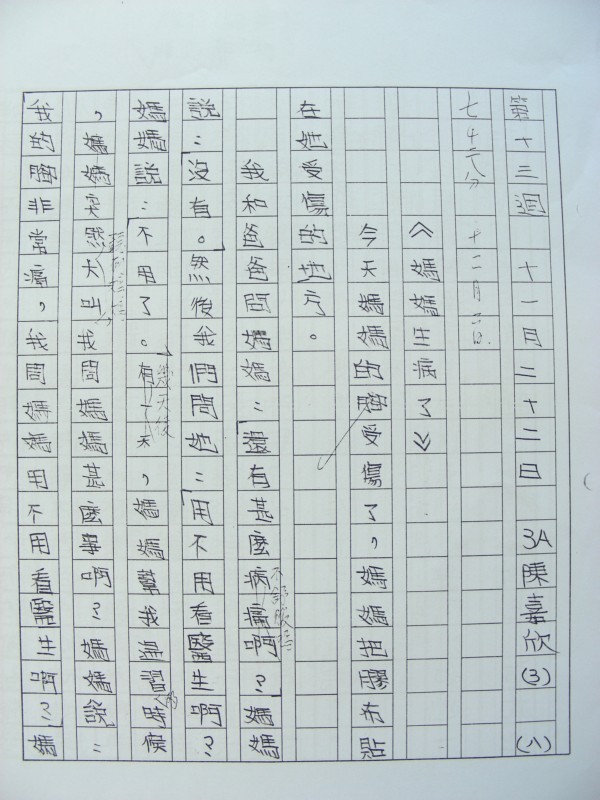 第十三週 十一月二十二日 3A 陳嘉欣 (3) (八)
七十六分 十二月
《媽媽生病了》
今天媽媽的腳受傷了,媽媽把膠布貼
在她受傷的地方。
我和爸爸問媽媽:「還有甚麼病痛啊?」媽媽
不舒服
說:「沒有。」然後我們問她:「用不用看醫生啊?
媽媽說:不用了。」有一天,媽媽幫我習時候
幾天後
的
,媽媽突然大叫我問媽媽甚麼事啊?媽媽說:
我的腳非常痛,我問媽媽用不用看醫生啊?」媽